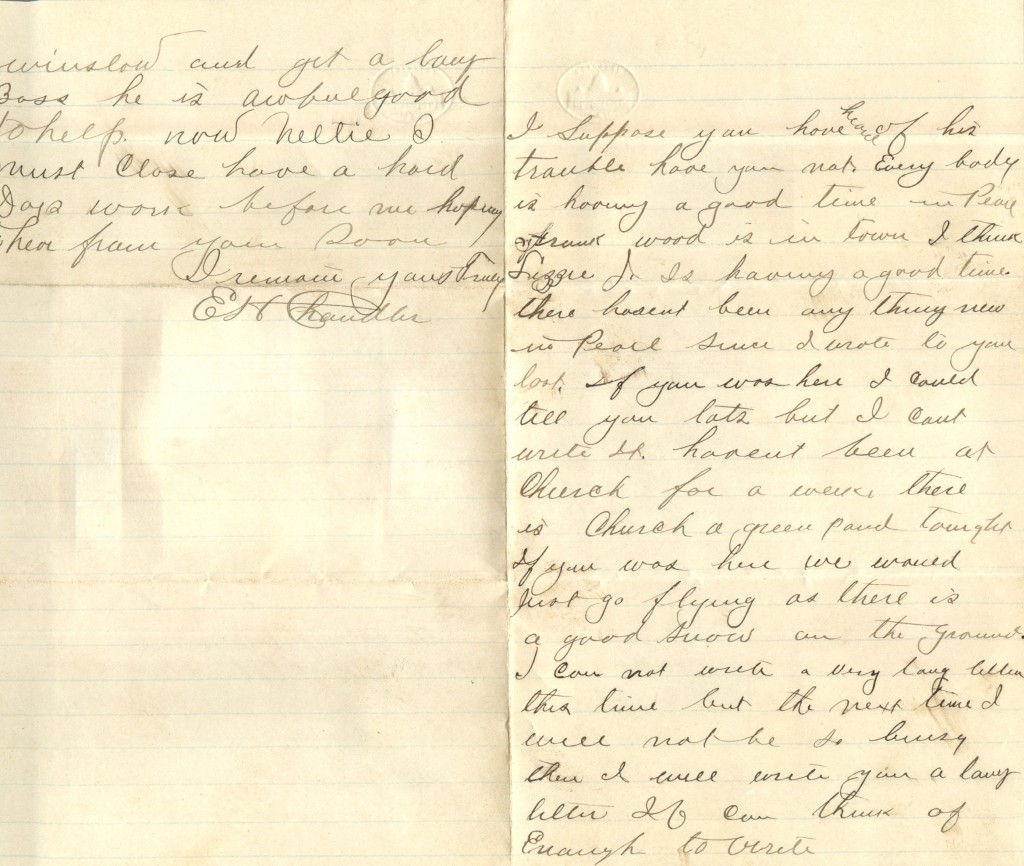 winslow and get a long
Boss he is awful good
to help. now Nettie I
must Close have a hard
Days work before me hoping
hear from you soon
I remain yours Truly
E H Chandler
I Suppose you have heard of his
trouble have you not. Every body
is having a good time in Pearl
Frank wood is in town I think
Lizzie J. Is having a good time.
there hasent been any thing new
in Pearl since I wrote to you
last. If you was here I could
tell you lots but I cant
write it. havent been at
Church for a week. there
is Church a green pond tonight
If you was here we would
Just go flying as there is
a good snow on the ground.
I can not write a very long letter
this time but the next time I
will not be so buisy
then I will write you a long
letter If can think of
Enough to write